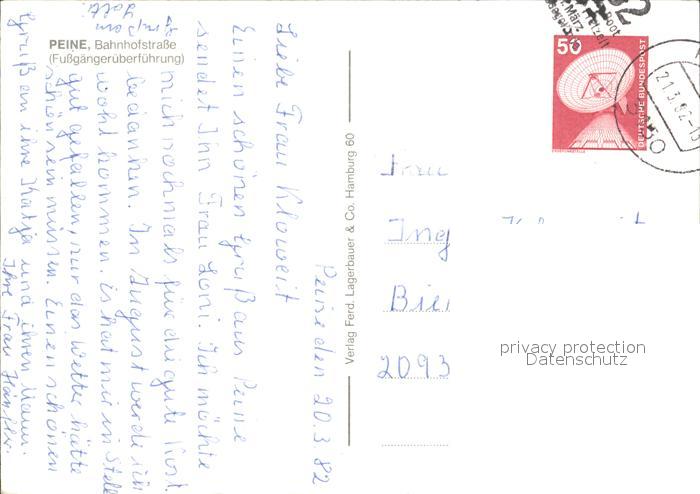 PEINE, Bahnhofstraße
(Fußgängerüberführung)
Peine den 20.3.82
Liebe Frau Kloweit
Einen schönen Gruß aus Peine
sendet Ihn Frau Loni. Ich möchte
mich nochmals für die gute Kost
bedanken. Im August werde ich
wohl kommen. Es hat mir in Stelle
gut gefallen, nur das Wetter hätte
schön sein müssen. Einen schönen
Gruß an ihre Katja und ihren Mann.
Ihre Frau
Verlag Ferd. Lagerbauer & Co. Hamburg 60
50
DEUTSCHE BUNDESPOST
21.3.82
3150
Frau
Ing
2093
privacy protection
Datenschutz